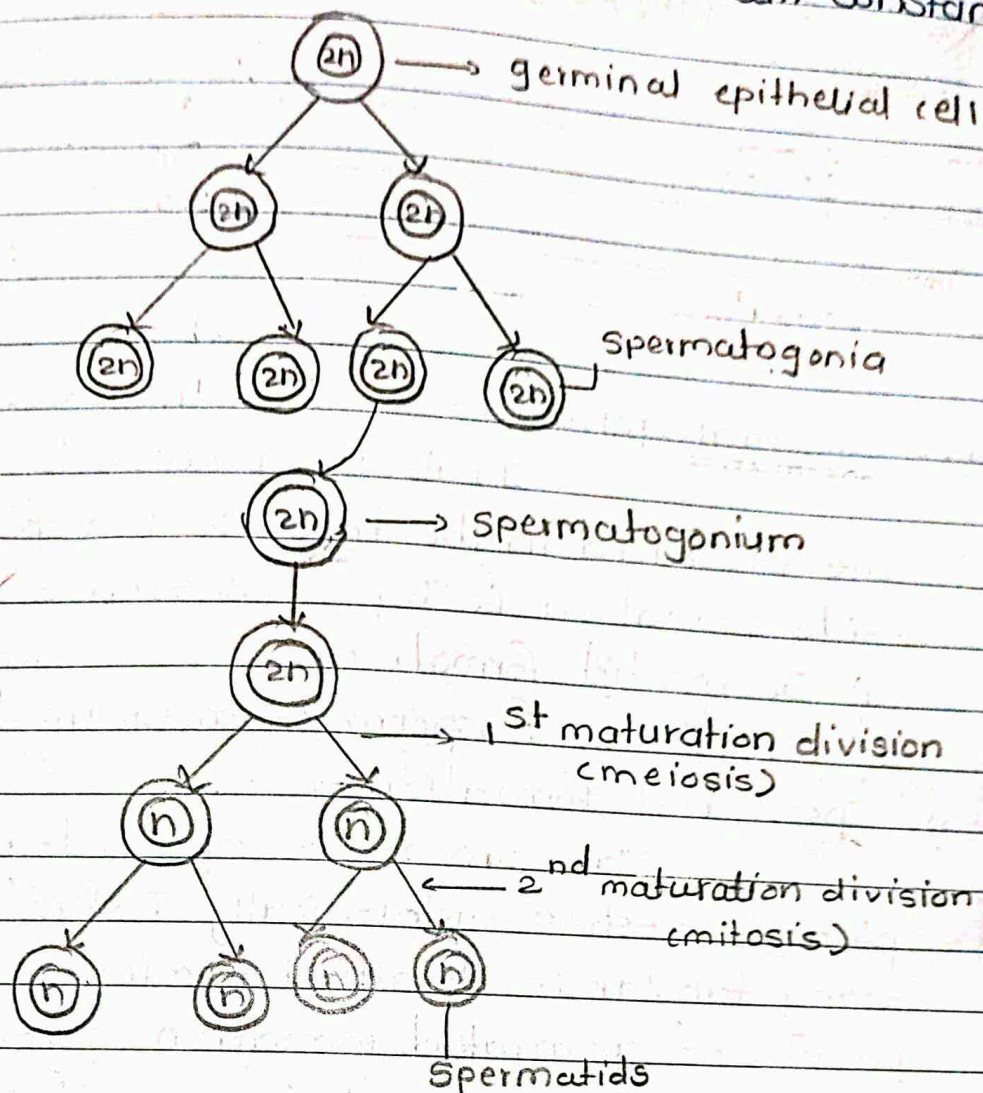 2n → germinal epithelial cell
2n 2n
2n 2n 2n 2n spermatogonia
2n → spermatogonium
2n
→ 1st maturation division
(meiosis)
n n
← 2nd maturation division
(mitosis)
n n n n
spermatids